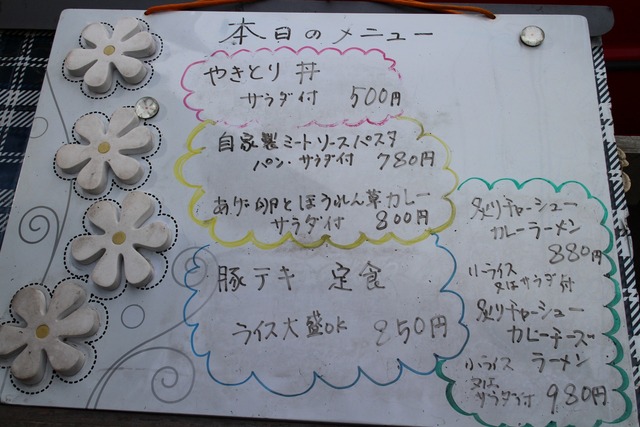 本日のメニュー
やきとり 丼
サラダ付 500円
自家製ミートソースパスタ
パン・サラダ付 780円
あげ卵とほうれん草カレー
サラダ付 800円
豚テキ 定食
ライス大盛OK 850円
炙りチャーシュー
カレーラーメン
880円
小ライス
又はサラダ付
炙りチャーシュー
カレーチーズ
ラーメン
小ライス
又は
サラダ付 980円